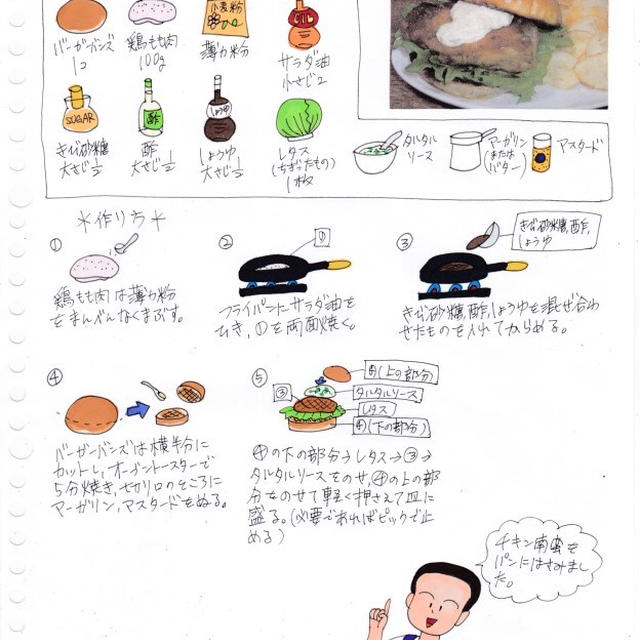 バーガーバンズ
1コ
鶏もも肉
100g
小麦粉
薄力粉
OIL
サラダ油
小さじ2
SUGAR
きび砂糖
大さじ1/2
酢
酢
大さじ1/2
しょうゆ
しょうゆ
大さじ1/2
レタス
(ちぎったもの)
1枚
タルタル
ソース
マーガリン
(または
バター)
マスタード
*作り方*
①
鶏もも肉は薄力粉
をまんべんなくまぶす。
②
①
フライパンにサラダ油を
ひき、①を両面焼く。
③
きび砂糖,酢,
しょうゆ
きび砂糖,酢,しょうゆを混ぜ合わ
せたものを入れてからめる。
④
バーガーバンズは横半分に
カットし、オーブントースターで
5分焼き、セカリ口のところに
マーガリン,マスタードをぬる。
⑤
④(上の部分)
タルタルソース
③
レタス
④(下の部分)
④の下の部分→レタス→③→
タルタルソースをのせ,④の上の部
分をのせて軽く押さえて皿に
盛る。(必要であればピックで止
める)
チキン南蛮を
パンにはさみまし
た。